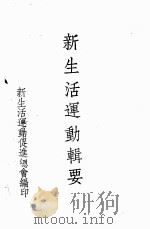 新生活運動輯要
新生活運動促進總會編印